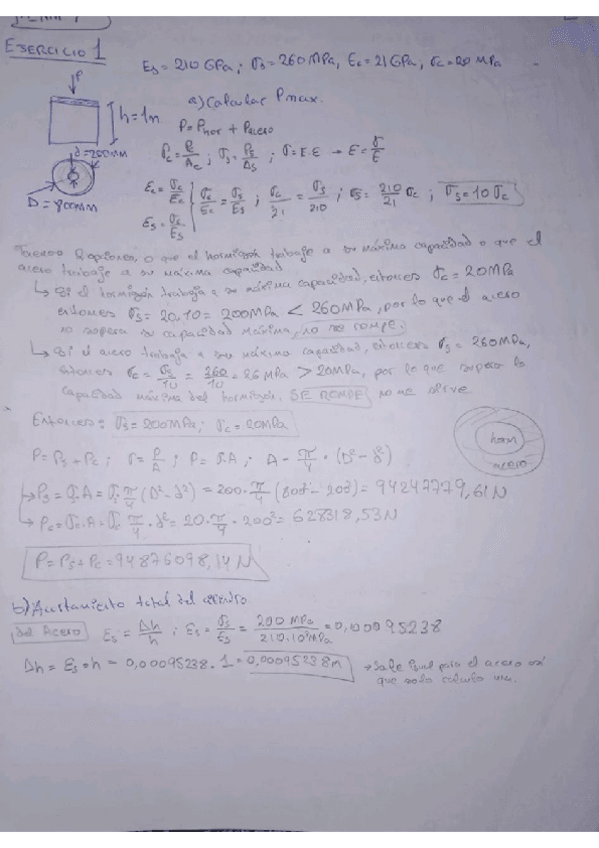 EJERCICIO 1
Es = 210 GPa; σs = 260 MPa, Ec = 21 GPa, σc = 20 MPa
P
a) Calcular Pmax.
h = 1m
P = Phor + Pacero
d = 200mm
σc = Pc/Ac ; σs = Ps/As ; σ = E·ε → ε = σ/E
D = 800mm
εc = σc/Ec } σc/Ec = σs/Es ; σc/21 = σs/210 ; σs = 210/21 σc ; σs = 10 σc
εs = σc/Es
Tenemos 2 opciones, o que el hormigón trabaje a su máxima capacidad o que el
acero trabaje a su máxima capacidad
↳ Si el hormigón trabaja a su máxima capacidad, entonces σc = 20MPa
entonces σs = 20·10 = 200MPa < 260MPa, por lo que el acero
no supera su capacidad máxima, no se rompe.
↳ Si el acero trabaja a su máxima capacidad, entonces σs = 260MPa,
entonces σc = σs/10 = 260/10 = 26 MPa > 20MPa, por lo que supera la
capacidad máxima del hormigón, SE ROMPE, no me sirve
Entonces: σs = 200MPa; σc = 20MPa
horm
acero
P = Ps + Pc ; σ = P/A ; P = σ·A ; A = π/4 · (D² - d²)
↳ Ps = σs·A = σs·π/4 (D² - d²) = 200·π/4 (800² - 200²) = 94247779,61N
↳ Pc = σc·A = σc π/4 · d² = 20·π/4 · 200² = 628318,53N
P = Ps + Pc = 94876098,14N
b) Acortamiento total del
del Acero εs = Δh/h ; εs = σs/Es = 200 MPa / 210·10³MPa = 0,00095238
Δh = εs · h = 0,00095238 · 1 = 0,00095238m → Sale igual para el acero así
que solo calculo una.